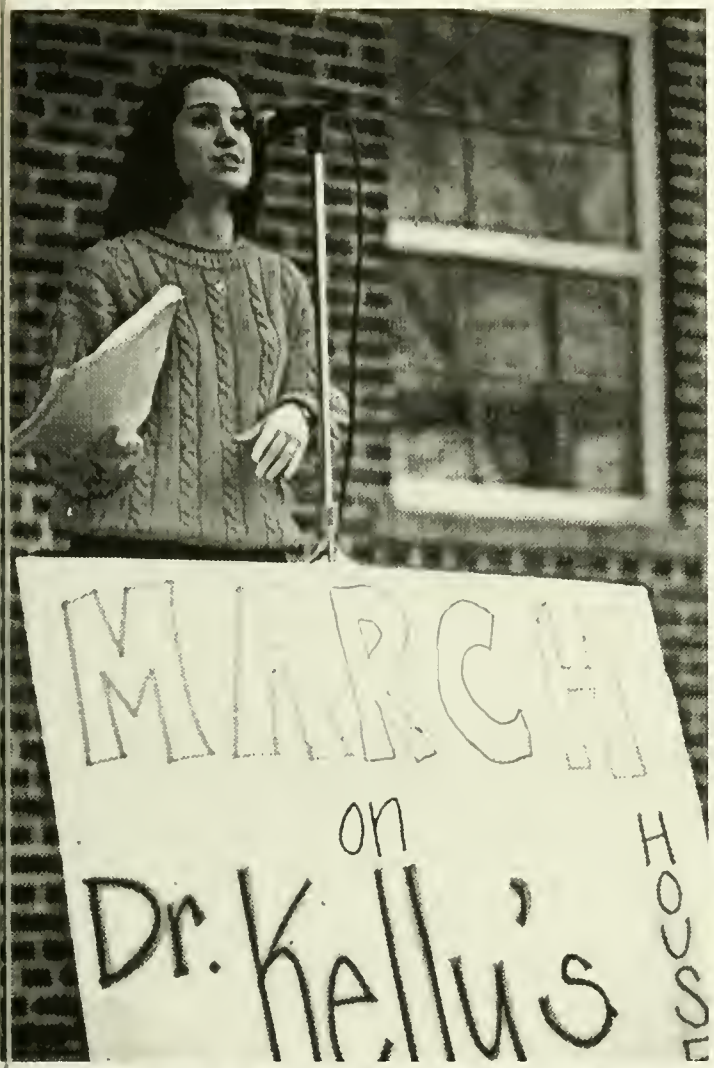 MARCH
on
Dr. Kelly's
HOUSE